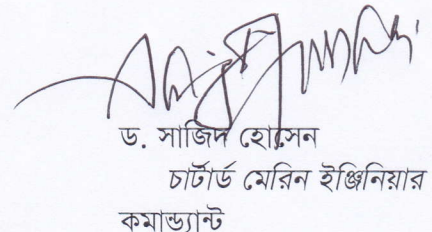 ড. সাজিদ হোসেন
চার্টার্ড মেরিন ইঞ্জিনিয়ার
কমান্ড্যান্ট